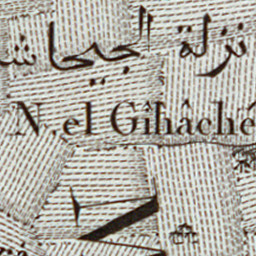 نزلة الجيحاش
N. el Gîhâché